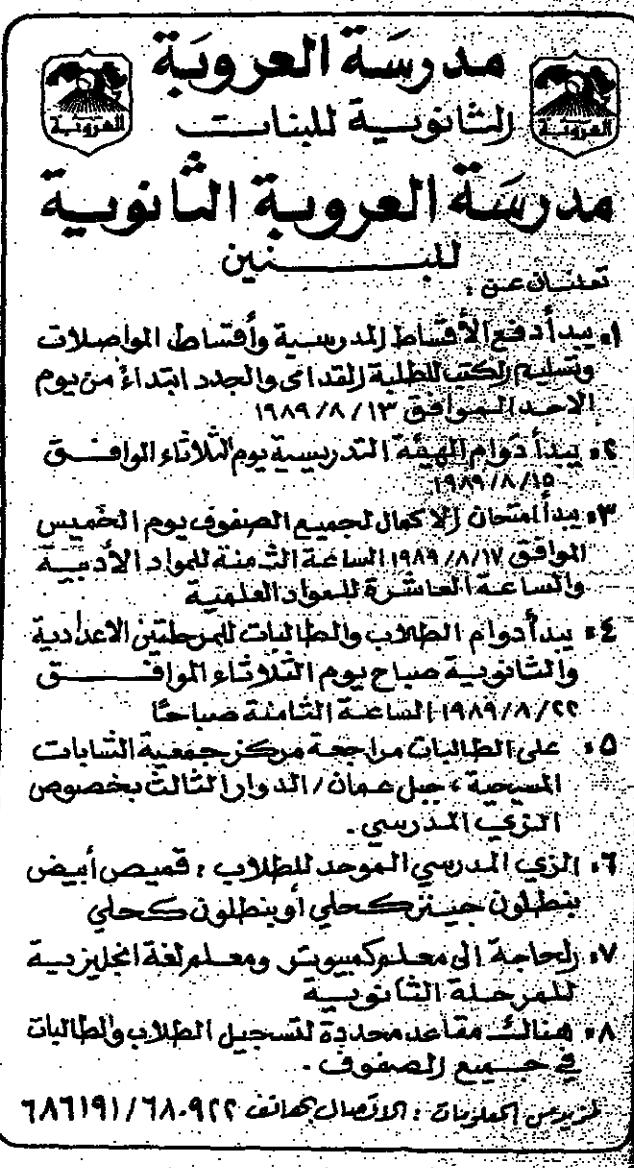 مدرسة العروبة
الثانوية للبنات
العروبة
العروبة
مدرسة العروبة الثانوية
للبنين
تعلنان عن :
١. يبدأ دفع الأقساط المدرسية وأقساط المواصلات
وتسليم الكتب للطلبة القدامى والجدد ابتداءً من يوم
الاحد الموافق ١٣ / ٨ / ١٩٨٩
٢. يبدأ دوام الهيئة التدريسية يوم الثلاثاء الموافق
١٩٨٩/٨/١٥
٣. يبدأ امتحان الاكمال لجميع الصفوف يوم الخميس
الموافق ١٩٨٩/٨/١٧ الساعة الثامنة للمواد الأدبية
والساعة العاشرة للمواد العلمية
٤. يبدأ دوام الطلاب والطالبات للمرحلتين الاعدادية
والثانوية صباح يوم الثلاثاء الموافق
١٩٨٩/٨/٢٢ الساعة الثامنة صباحًا
٥. على الطالبات مراجعة مركز جمعية الشابات
المسيحية ، جبل عمان / الدوار الثالث بخصوص
الزي المدرسي .
٦. الزي المدرسي الموحد للطلاب : قميص أبيض
بنطلون جينز كحلي أو بنطلون كحلي
٧. الحاجة الى معلم كمبيوتر ومعلم لغة انجليزية
للمرحلة الثانوية
٨. هنالك مقاعد محددة لتسجيل الطلاب والطالبات
في جميع الصفوف .
لمزيد من المعلومات : الاتصال بهاتف ٦٨٠٩٢٢ / ٦٨٦١٩١